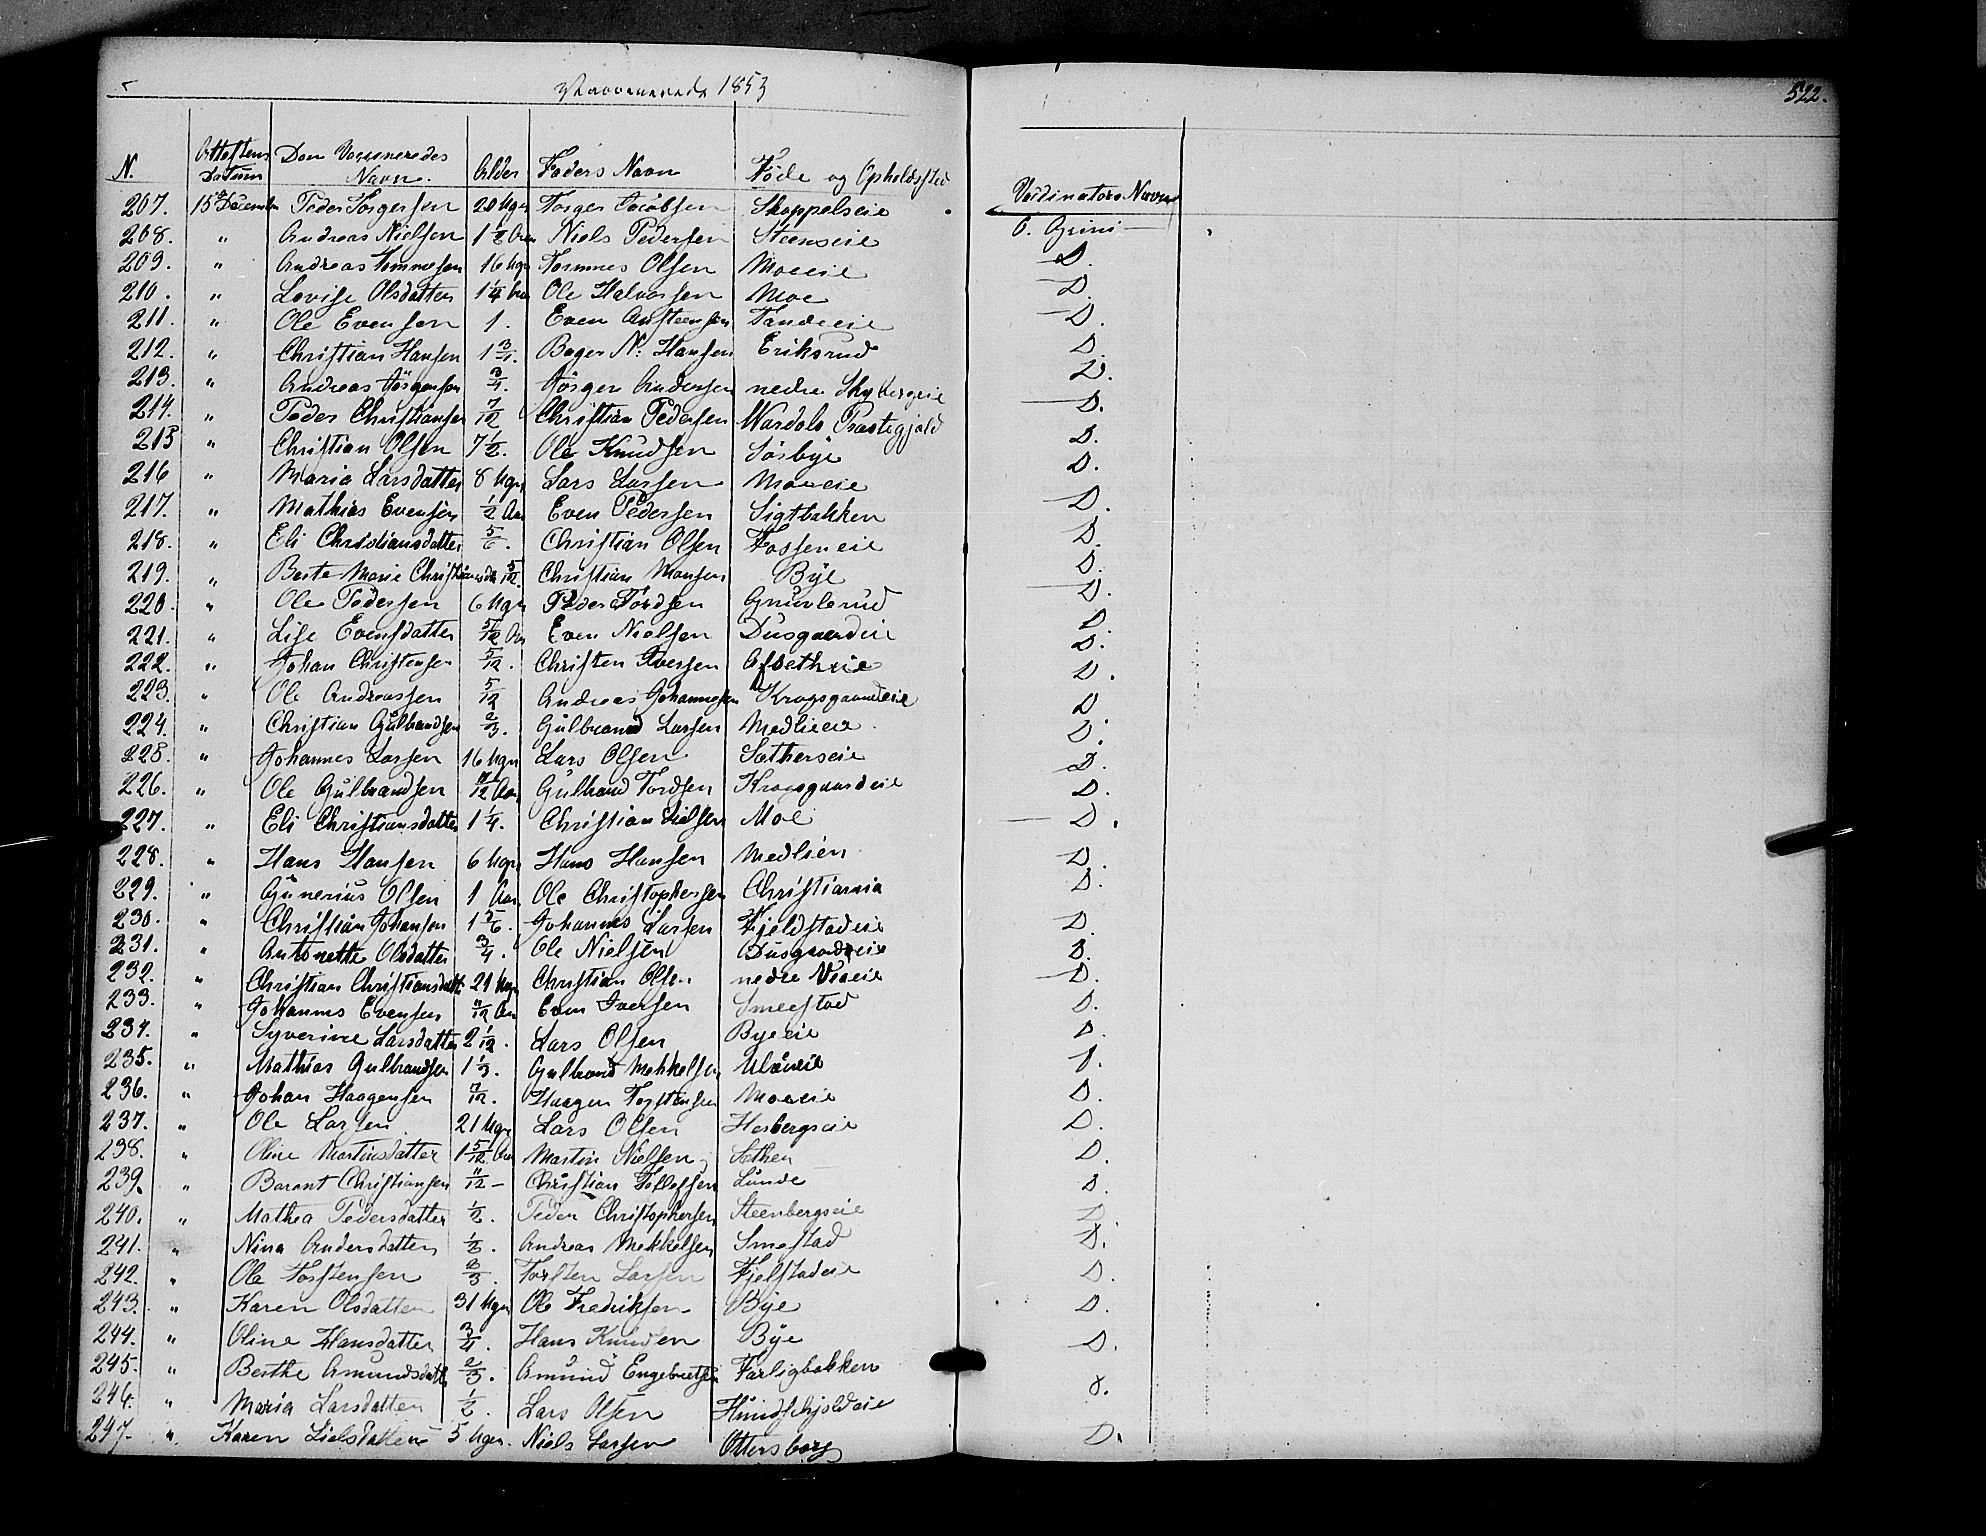 Vaccinerede 1853
522.
N. Attestens Datum Den Vaccineredes Navn. Alder Faders Navn Føde og Opholdssted Vaccinators Navn
207. 15 December Peder Torgersen 20 Uger Torger Jacobsen Skappelseie O. Grini
208. " Andreas Nielsen 1 1/2 Aar Niels Pedersen Steenseie D.
209. " Andreas Tommesen 16 Uger Tommes Olsen Moeeie D.
210. " Lovise Olsdatter 1 1/4 Aar Ole Halvorsen Moe D.
211. " Ole Evensen 1. Even Austeensen Tandeeie D.
212. " Christian Hansen 1 3/4. N. Hansen Eriksrud D.
213. " Andreas Jörgensen 3/4. Jörgen Andersen nedre Skybergeie D.
214. " Peder Christiansen 7/12 Christian Pedersen Præstegjeld D.
215 " Christian Olsen 7 1/2. Ole Knudsen Sörbye D.
216 " Maria Larsdatter 8 Uger Lars Larsen Moeeie D.
217. " Mathias Evensen 1/2 Aar Even Pedersen Sigtbakken D.
218. " Eli Christiansdatter 5/6. Christian Olsen Fosseneie D.
219. " Berte Marie 5/12. Christian Monsen Bye D.
220. " Ole Pedersen 6 Uger Peder Tordsen D.
221. " Lise Evensdatter 5/12 Aar Even Nielsen Dusgaardeie D
222. " Johan Christensen 5/12. Christen Iversen D.
223. " Ole Andreassen 5/12 Andreas Johannesen Krogsgaardeie D.
224. " Christian Gulbrandsen 2/3. Gulbrand Larsen Medlieeie D
225. " Johannes Larsen 16 Uger Lars Olsen Sætherseie D.
226. " Ole Gulbrandsen 7/12 Aar Gulbrand Tordsen Krogsgaardeie D.
227. " Eli Christiansdatter 1 1/4. Christian Moe D.
228. " Hans Hansen 6 Uger Hans Hansen Medlien D.
229. " Gunerius Olsen 1 Aar Ole Christophersen Christiania D.
230. " Christian Johansen 1 5/6. Johannes Larsen Fjeldstadeie D.
231. " Antonette Olsdatter 3/4. Ole Nielsen Dusgaardeie D.
232. " Christian Christiansdatt 21 Uger Christian Olsen nedre D.
233. " Johannes Evensen 11/12 Aar Even Iversen Smeestad D.
234. " Syverine Larsdatter 2 1/12. Lars Olsen Byeeie D.
235. " Mathias Gulbrandsen 1 1/3. Gulbrand Mekkelsen D.
236. " Johan Haagensen 7/12. Haagen Torstensen Moeeie D.
237. " Ole Larsen 21 Uger Lars Olsen Hesbergseie D.
238. " Oline Martinsdatter 1 5/12 Aar Martin Nielsen Sæthen D.
239. " Berent Christiansen 11/12 - Christian Tollefsen Lunde D.
240. " Mathea Pedersdatter 1/2. Peder Christophersen Steenbergseie D.
241. " Nina Andersdatter 1/2. Andreas Mekkelsen Smestad D.
242. " Ole Torstensen 2/3. Torsten Larsen Fjelstadeie D.
243. " Karen Olsdatter 31 Uger Ole Fredriksen Bye D.
244. " Oline Hansdatter 3/4. Hans Knudsen Bye D.
245. " Berthe Amundsdatt 2/3. Amund Engebretsen Farligbakken
246. " Maria Larsdatter 1/2. Lars Olsen Hundskjoldeie D.
247. " Karen 5 Uger. Niels Larsen Ottersborg D.